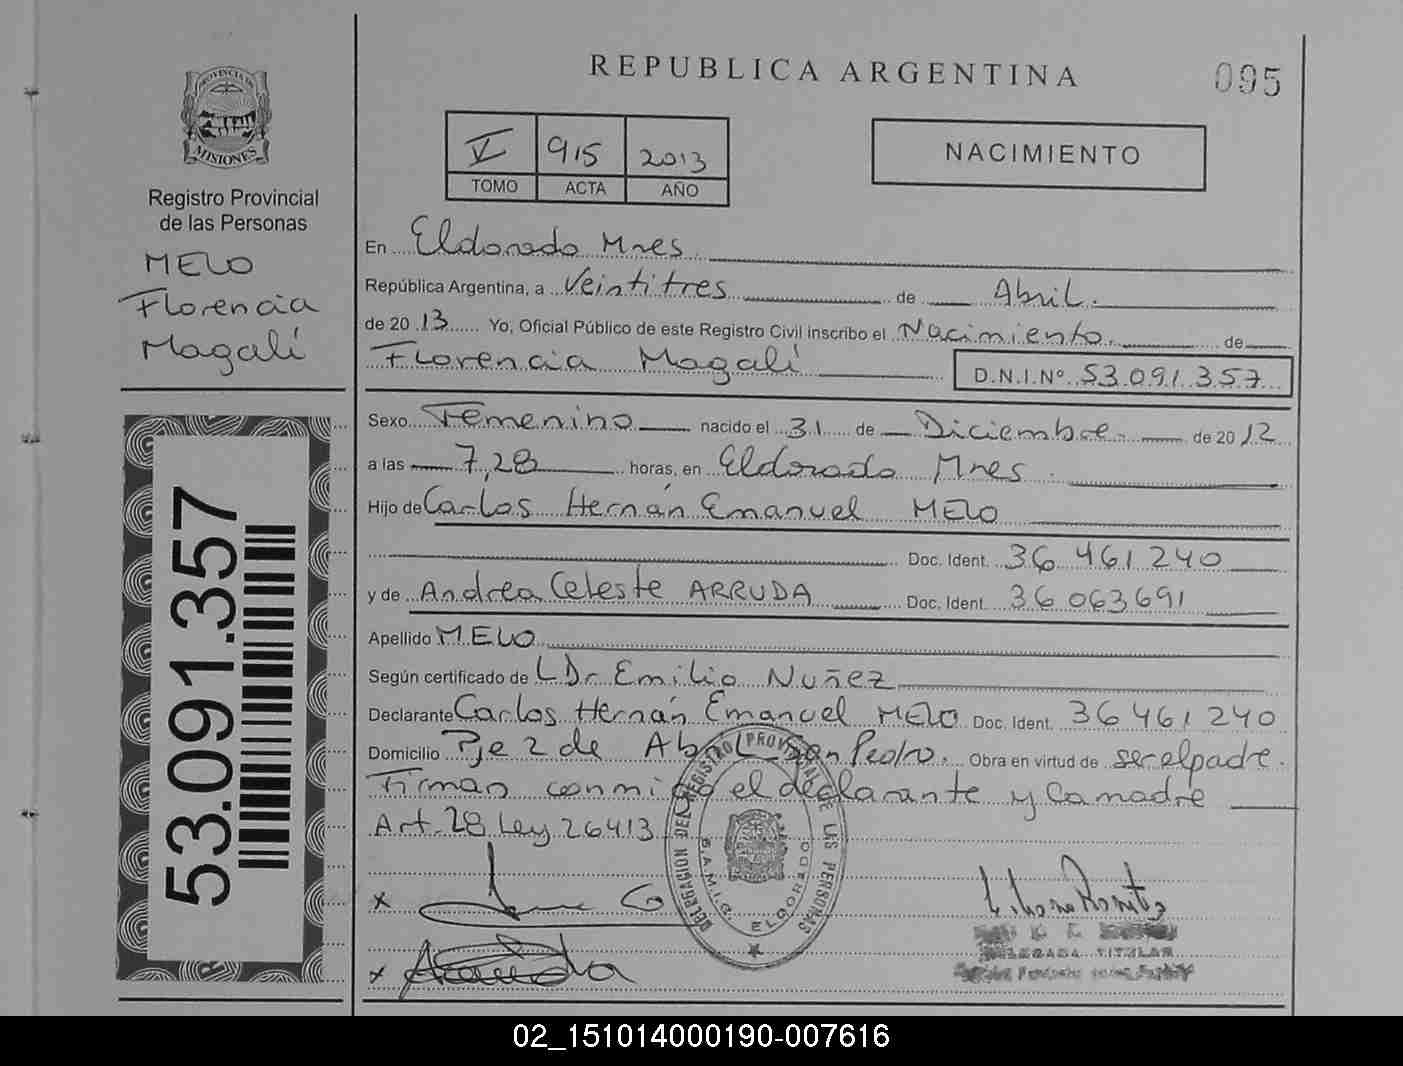 REPUBLICA ARGENTINA
095
PROVINCIA DE
MISIONES
Registro Provincial
de las Personas
MELO
Florencia
Magalí
53.091.357
V 915 2013
TOMO ACTA AÑO
NACIMIENTO
En Eldorado Mnes
República Argentina, a Veintitres de Abril.
de 2013 Yo, Oficial Público de este Registro Civil inscribo el Nacimiento. de
Florencia Magalí D.N.I.Nº 53.091.357
Sexo Femenino nacido el 31 de Diciembre. de 2012
a las 7,28 horas, en Eldorado Mnes.
Hijo de Carlos Hernán Emanuel MELO
Doc. Ident. 36 461 240
y de Andrea Celeste ARRUDA Doc. Ident. 36 063 691
Apellido MELO
Según certificado de LDr Emilio Nuñez
Declarante Carlos Hernán Emanuel MELO Doc. Ident. 36 461 240
Domicilio Pje 2 de Abril San Pedro. Obra en virtud de ser el padre.
Firman conmigo el declarante y la madre
Art. 28 Ley 26413
DELEGACION DEL REGISTRO PROVINCIAL DE LAS PERSONAS
ELDORADO
x
x
DELEGADA TITULAR
02_151014000190-007616